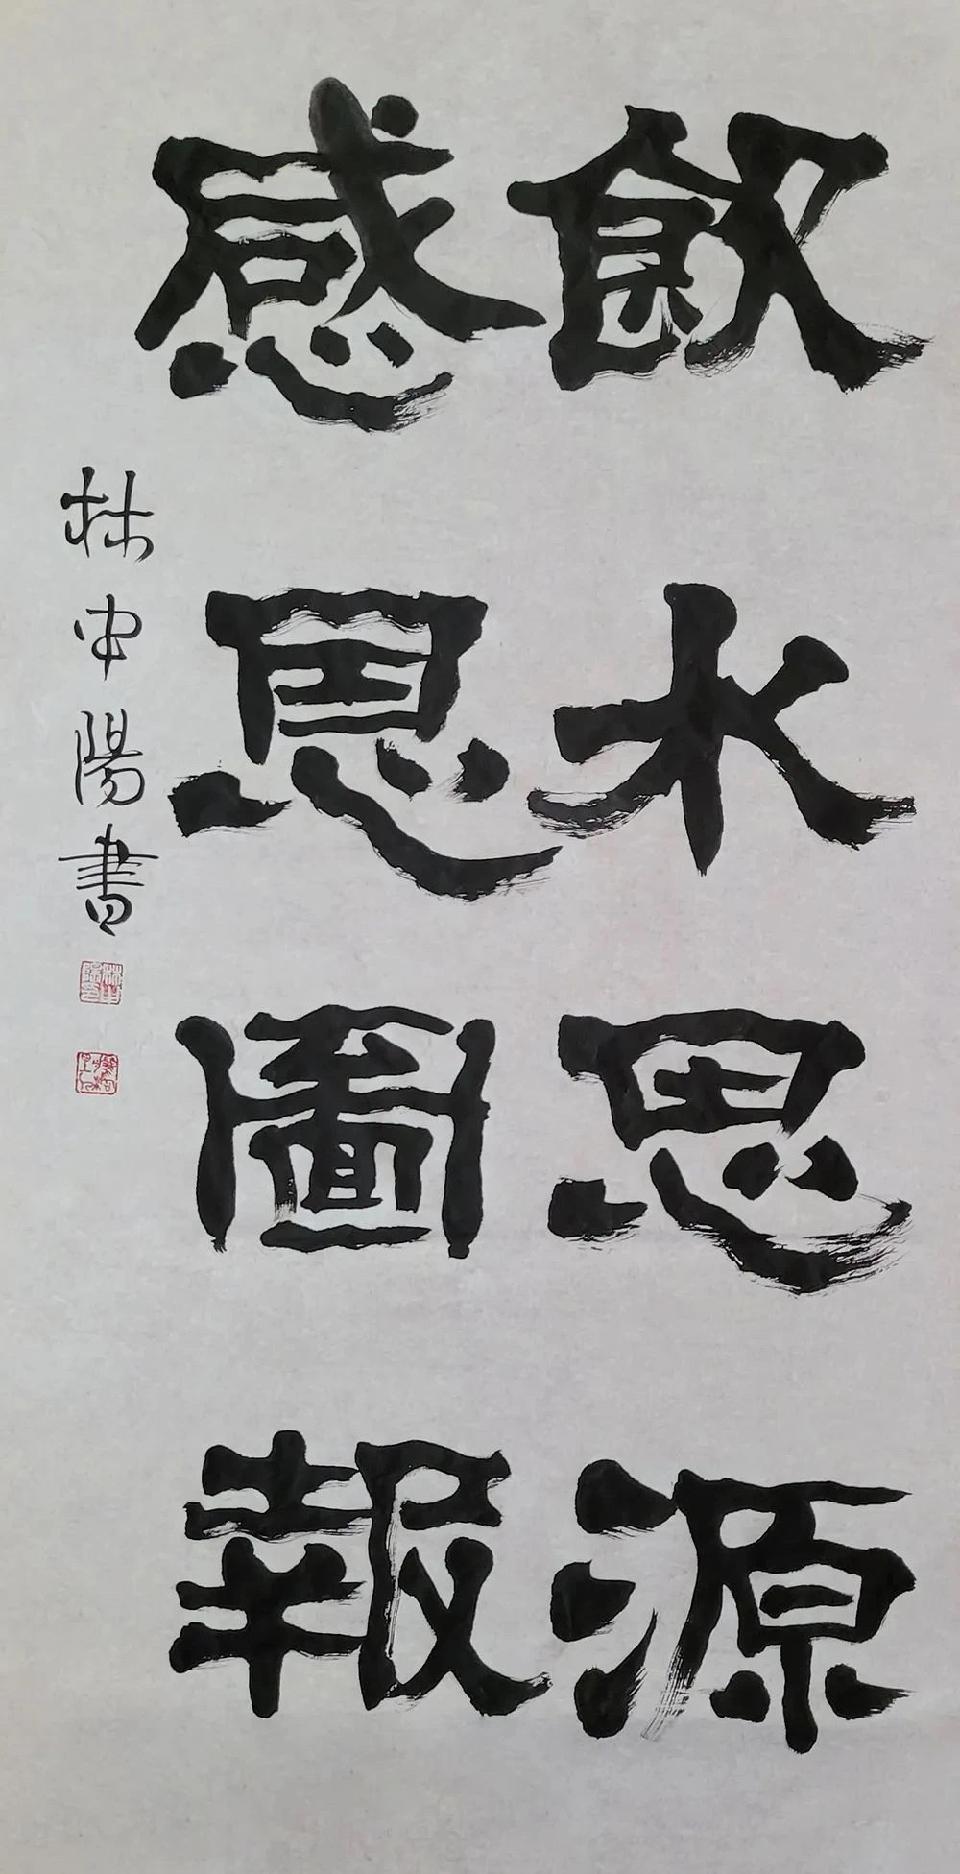 飲水思源
感恩圖報
林中陽書